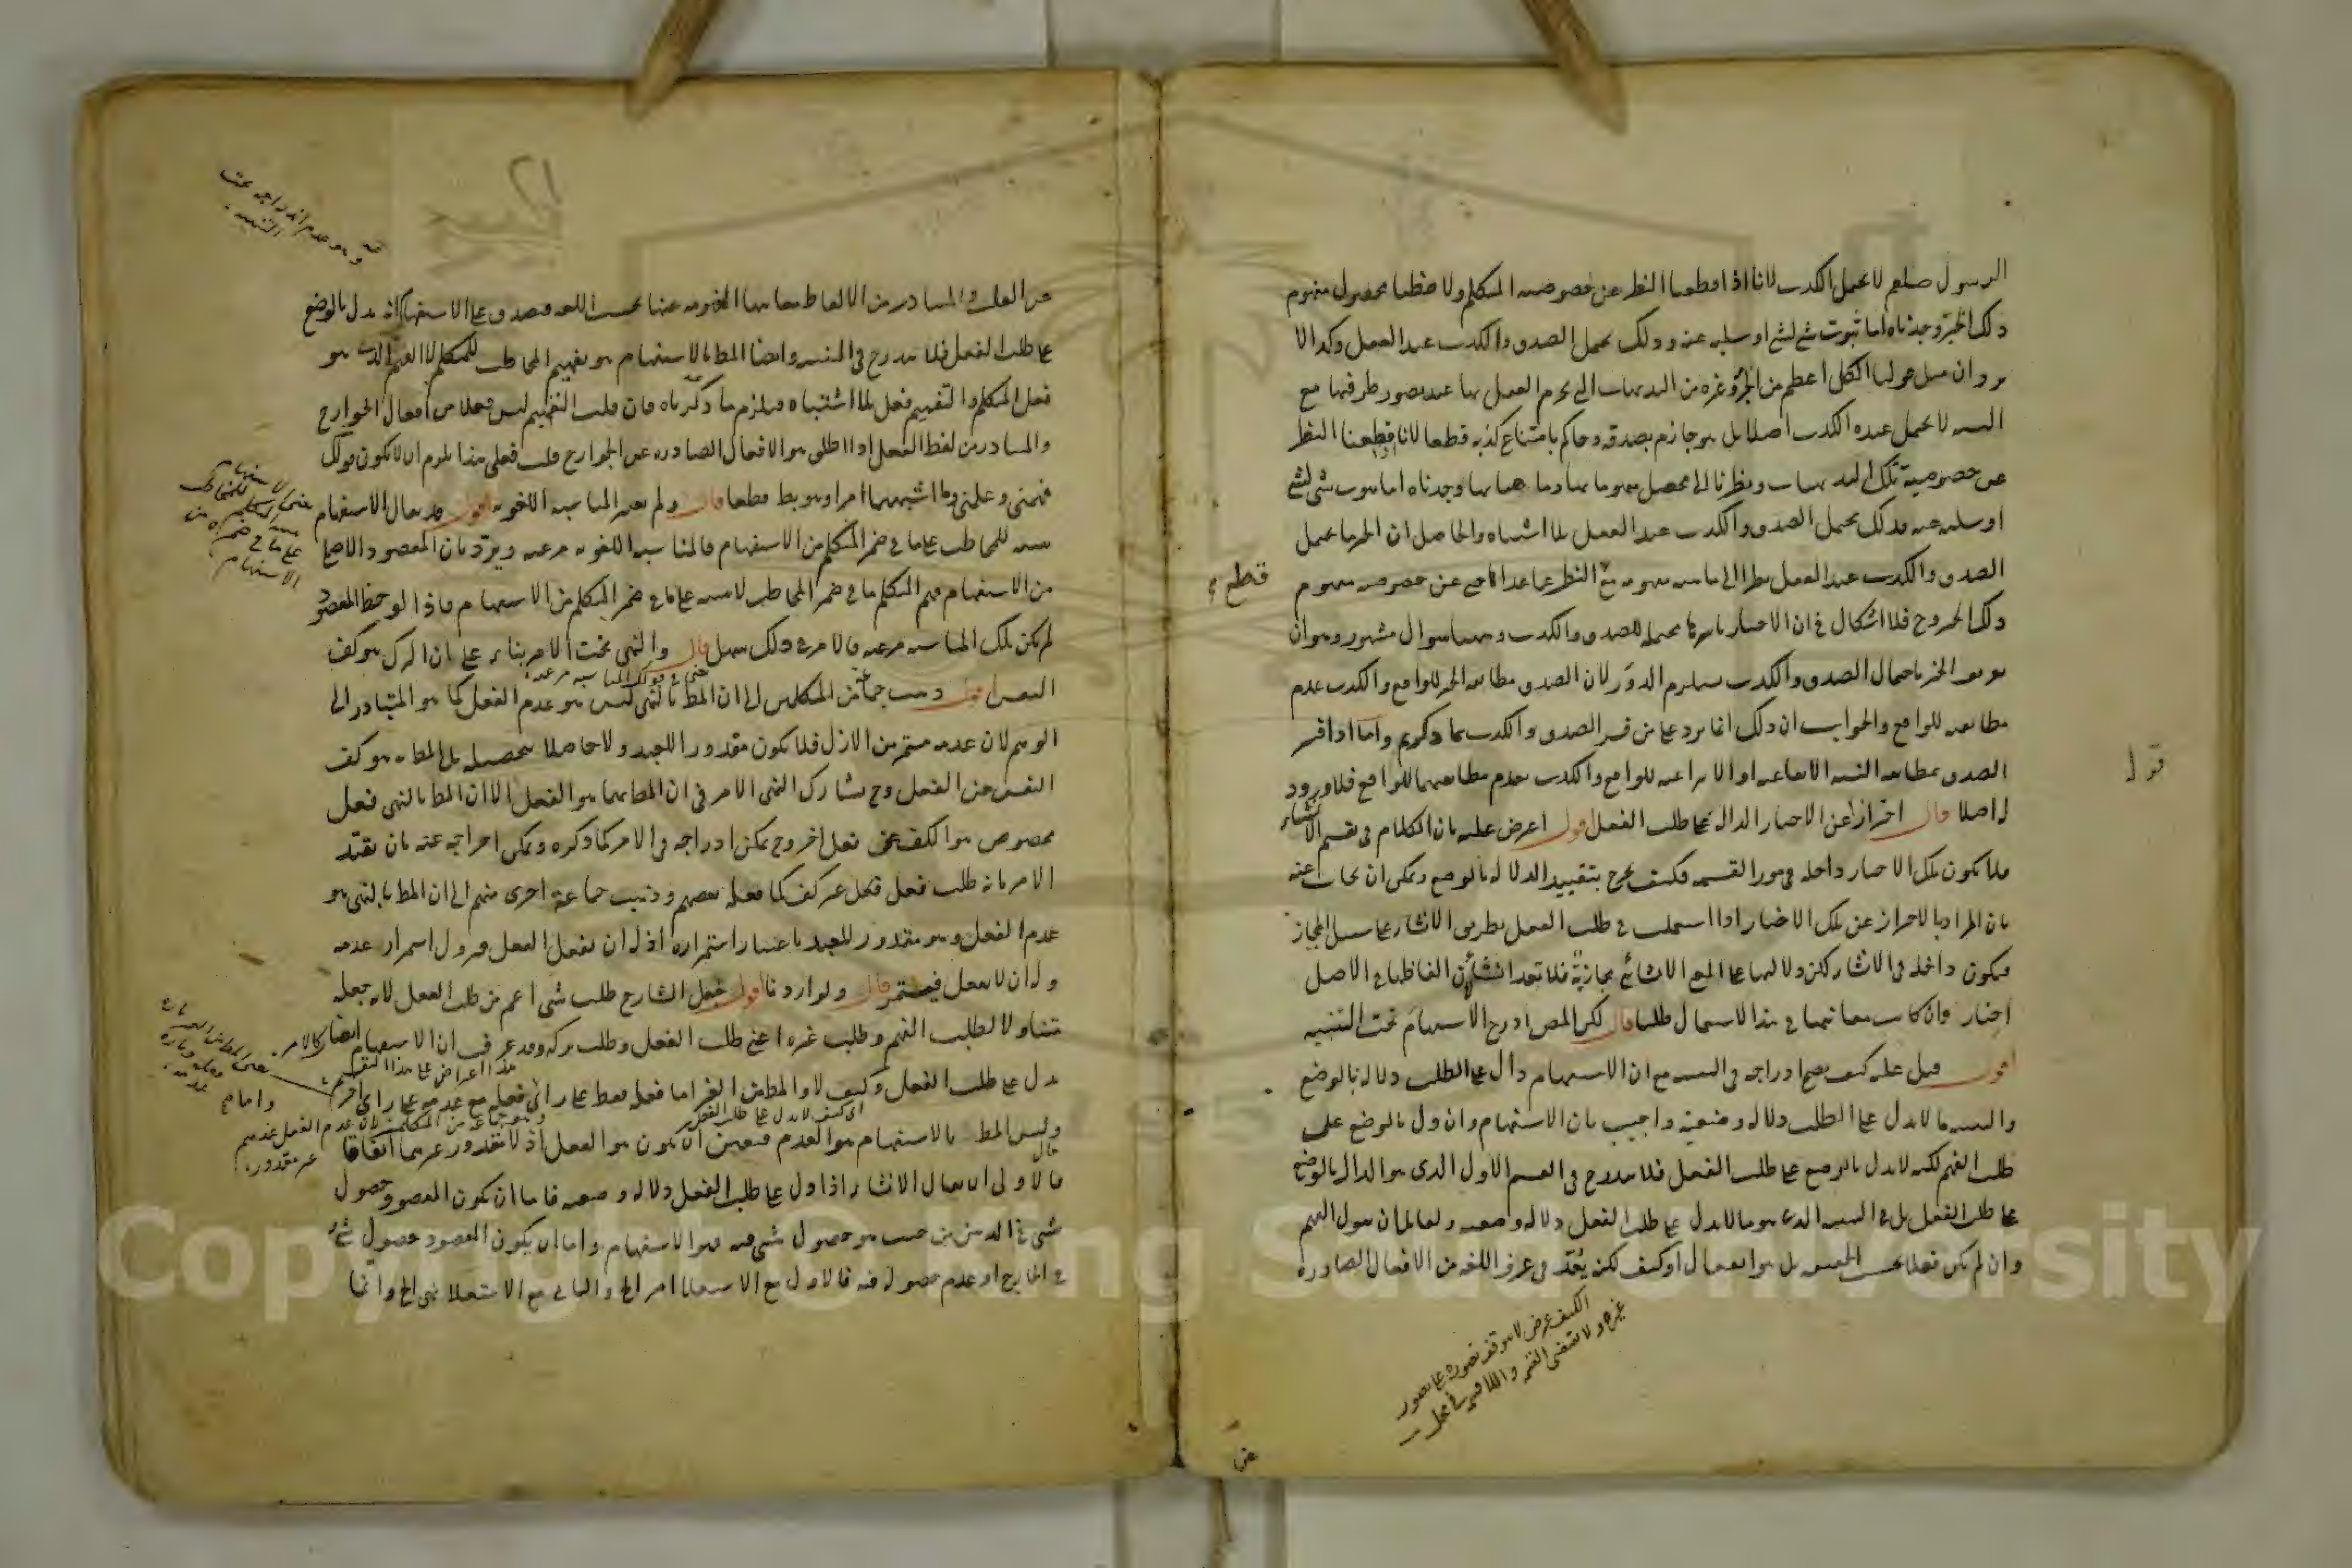 الرسول صلعم لا يحتمل الكذب لانا اذا قطعنا النظر عن خصوصية المتكلم ولاحظنا محصول مفهوم
ذلك الخبر وجدناه اما ثبوت شئ لشئ او سلبه عنه وذلك يحتمل الصدق والكذب عند العقل وكذا لا
يرد ان مثل قولنا الكل اعظم من الجزء وغيره من البديهيات التي يجزم العقل بها عند تصور طرفيها مع
النسبة لا يحتمل عنده الكذب اصلا بل هو جازم بصدقه وحاكم بامتناع كذبه قطعا لانا اذا قطعنا النظر
عن خصوصية تلك البديهيات ونظرنا الى محصل مفهوماتها وماهياتها وجدناه اما ثبوت شئ لشئ
او سلبه عنه وذلك يحتمل الصدق والكذب عند العقل بلا اشتباه والحاصل ان الخبر ما يحتمل
الصدق والكذب عند العقل نظرا الى ماهية مفهومه مع قطع النظر عما عداها حتى عن خصوصية مفهوم
ذلك الخبر وح فلا اشكال في ان الاخبار باسرها محتملة للصدق والكذب وههنا سؤال مشهور وهو ان
تعريف الخبر باحتمال الصدق والكذب يستلزم الدور لان الصدق مطابقة الخبر للواقع والكذب عدم
مطابقته للواقع والجواب ان ذلك انما يرد على من فسر الصدق والكذب بما ذكرتم واما اذا فسر
الصدق بمطابقة النسبة الايقاعية او الانتزاعية للواقع والكذب بعدم مطابقتهما للواقع فلا ورود
له اصلا قال احتراز عن الاخبار الدالة على طلب الفعل اقول اعترض عليه بان الكلام في تقسيم الانشاء
فلا تكون تلك الاخبار داخلة في مورد القسمة فكيف يخرج بتقييد الدلالة بالوضع ويمكن ان يجاب عنه
بان المراد بالاحتراز عن تلك الاخبار اذا استعملت في طلب الفعل بطريق الانشاء على سبيل المجاز
فيكون داخلة في الانشاء لكن دلالتها على المعنى الانشائي مجازية فلا تعد انشاء لان الفاظها في الاصل
اخبار وان كانت معانيها في هذا الاستعمال طلبا قال لكن المص ادرج الاستفهام تحت التنبيه
اقول قيل عليه كيف يصح ادراجه في التنبيه مع ان الاستفهام دال على الطلب دلالة بالوضع
والتنبيه ما لا يدل على الطلب دلالة وضعية واجيب بان الاستفهام وان دل بالوضع على
طلب الفهم لكنه لا يدل بالوضع على طلب الفعل فلا يندرج في القسم الاول الذي هو الدال بالوضع
على طلب الفعل بل في التنبيه الذي هو ما لا يدل على طلب الفعل دلالة وضعية ولقائل ان يقول الفهم
وان لم يكن فعلا بحسب الحقيقة بل هو انفعال او كيف لكن يعد في عرف اللغة من الافعال الصادرة
الكيف عرض لا يتوقف تصوره على تصور
غيره ولا يقتضي القسمة واللاقسمة في محله
قطع
قول
عن
عن القلب والمتبادر من الالفاظ معانيها المفهومة عنها بحسب اللغة فيصدق على الاستفهام انه يدل بالوضع
على طلب الفعل فلا يندرج في التنبيه وايضا المط بالاستفهام هو تفهيم المخاطب للمتكلم لا الفهم الذي هو
فعل المتكلم والتفهيم فعل بلا اشتباه فيلزم ما ذكرناه فان قلت التفهيم ليس فعلا من افعال الجوارح
والمتبادر من لفظ الفعل اذا اطلق هو الافعال الصادرة عن الجوارح قلت فعلى هذا يلزم ان لا يكون قولك
فهمني وعلمني وما اشبههما امرا وهو بط قطعا قال ولم يعتبر المناسبة اللغوية اقول قد يقال الاستفهام
تنبيه للمخاطب على ما في ضمير المتكلم من الاستفهام فالمناسبة اللغوية مرعية ويرد بان المقصود الاصلي
من الاستفهام فهم المتكلم ما في ضمير المخاطب لا تنبيهه على ما في ضمير المتكلم من الاستفهام فاذا لوحظ المقصود
لم تكن تلك المناسبة مرعية والامر في ذلك سهل قال والنهي تحت الامر بناء على ان الترك هو كف
النفس اقول ذهب جماعة من المتكلمين الى ان المط بالنهي ليس هو عدم الفعل كما هو المتبادر الى
الوهم لان عدمه مستمر من الازل فلا يكون مقدورا للعبد ولا حاصلا بتحصيله بل المط به هو كف
النفس عن الفعل وح يشارك النهي الامر في ان المط بهما هو الفعل الا ان المط بالنهي فعل
مخصوص هو الكف عن فعل اخر وح يمكن ادراجه في الامر كما ذكره ويمكن اخراجه عنه بان يقيد
الامر بانه طلب فعل غير كف كما فعله بعضهم وذهب جماعة اخرى منهم الى ان المط بالنهي هو
عدم الفعل وهو مقدور للعبد باعتبار استمراره اذ له ان يفعل الفعل فيزول استمرار عدمه
وله ان لا يفعل فيستمر قال ولو اردنا اقول جعل الشارح طلب شئ اعم من طلب الفعل لانه جعله
متناولا لطلب الفهم وطلب غيره اعني طلب الفعل وطلب تركه وقد عرفت ان الاستفهام ايضا كالامر
يدل على طلب الفعل وكيف لا والمط من الغير اما فعله فقط على راي او فعله مع عدمه على راي اخر
وليس المط بالاستفهام هو العدم فتعين ان يكون هو الفعل اذ لا مقدور غيرهما اتفاقا
فالاولى ان يقال الانشاء اذا دل على طلب الفعل دلالة وضعية فاما ان يكون المقصود حصول
شئ في الذهن من حيث هو حصول شئ فيه فهو الاستفهام واما ان يكون المقصود حصول شئ
في الخارج او عدم حصوله فيه فالاول مع الاستعلاء امر الخ والثاني مع الاستعلاء نهي الخ وانما
وهو عدم اندراجه تحت
التنبيه